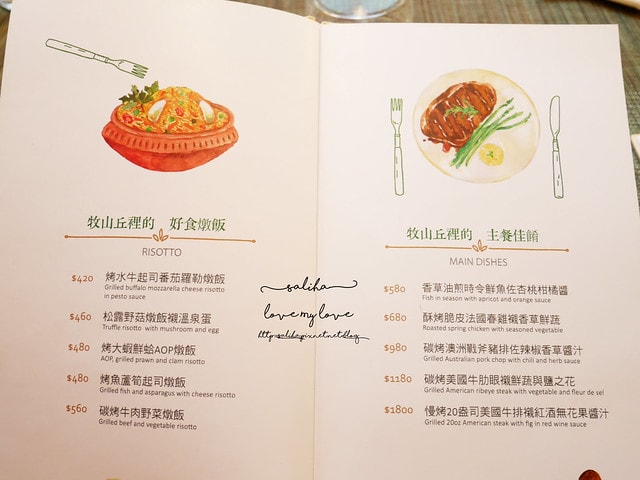 牧山丘裡的 好食燉飯
RISOTTO
$420 烤水牛起司番茄羅勒燉飯
Grilled buffalo mozzarella cheese risotto
in pesto sauce
$460 松露野菇燉飯襯溫泉蛋
Truffle risotto with mushroom and egg
$480 烤大蝦鮮蛤AOP燉飯
AOP, grilled prawn and clam risotto
$480 烤魚蘆筍起司燉飯
Grilled fish and asparagus with cheese risotto
$560 碳烤牛肉野菜燉飯
Grilled beef and vegetable risotto
saliha
love my love
http:saliha.pixnet.net/blog
牧山丘裡的 主餐佳餚
MAIN DISHES
$580 香草油煎時令鮮魚佐杏桃柑橘醬
Fish in season with apricot and orange sauce
$680 酥烤脆皮法國春雞襯香草鮮蔬
Roasted spring chicken with seasoned vegetable
$980 碳烤澳洲戰斧豬排佐辣椒香草醬汁
Grilled Australian pork chop with chili and herb sauce
$1180 碳烤美國牛肋眼襯鮮蔬與鹽之花
Grilled American ribeye steak with vegetable and fleur de sel
$1800 慢烤20盎司美國牛排襯紅酒無花果醬汁
Grilled 20oz American steak with fig in red wine sauce